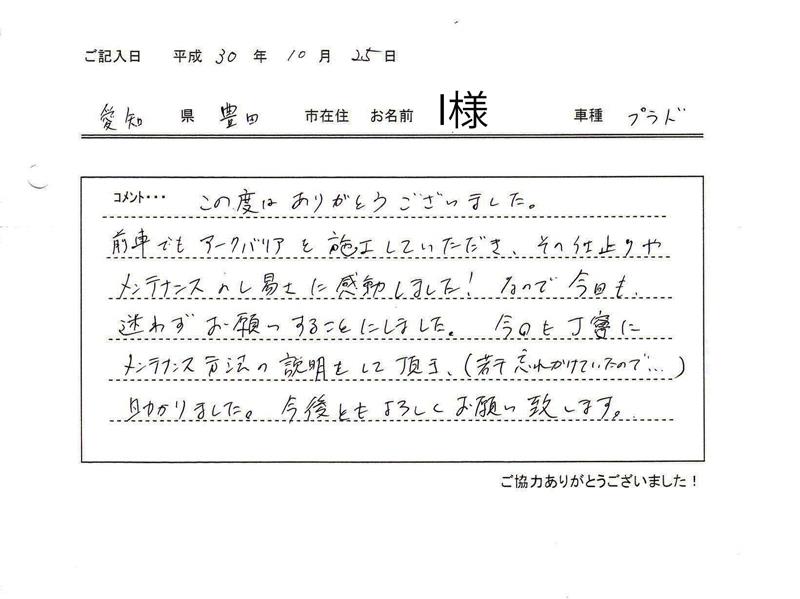 ご記入日 平成 30 年 10 月 25 日
愛知 県 豊田 市在住 お名前 I様 車種 プラド
コメント・・・ この度は ありがとうございました。
前車でも アークバリアを施工していただき、その仕上りや
メンテナンスのし易さに感動しました! なので今回も、
迷わずお願いすることにしました。 今回も丁寧に
メンテナンス方法の説明をして頂き、(若干忘れかけていたので…)
助かりました。今後ともよろしくお願い致します。
ご協力ありがとうございました!